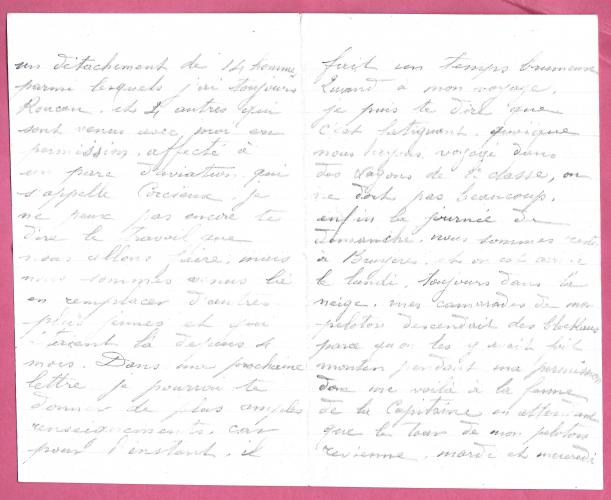 un détachement de 14 hommes
parmi lesquels j'ai toujours
Roucan, et 4 autres qui
sont venus avec moi en
permission, affecté à
un parc d'aviation qui
s'appelle Corcieux, je
ne peux pas encore te
dire le travail que
nous allons faire, mais
nous sommes venus là
en remplacer d'autres
plus jeunes et qui
étaient là depuis 4
mois. Dans une prochaine
lettre je pourrai te
donner de plus amples
renseignements, car
pour l'instant, il
fait un temps brumeux
Quand à mon voyage,
je puis te dire que
c'est fatiguant, quoique
nous ayons voyagé dans
des wagons de 2e classe, on
ne dort pas beaucoup,
enfin la journée du
dimanche, nous sommes resté
à Bruyères, et on est arrivé
le lundi, toujours dans la
neige, mes camarades de mon
peloton descendait des blockaus
parce qu'on les y avait fait
monter pendant ma permission
donc me voilà à la ferme
de la Capitaine en attendant
que le tour de mon peloton
revienne, mardi et mercredi